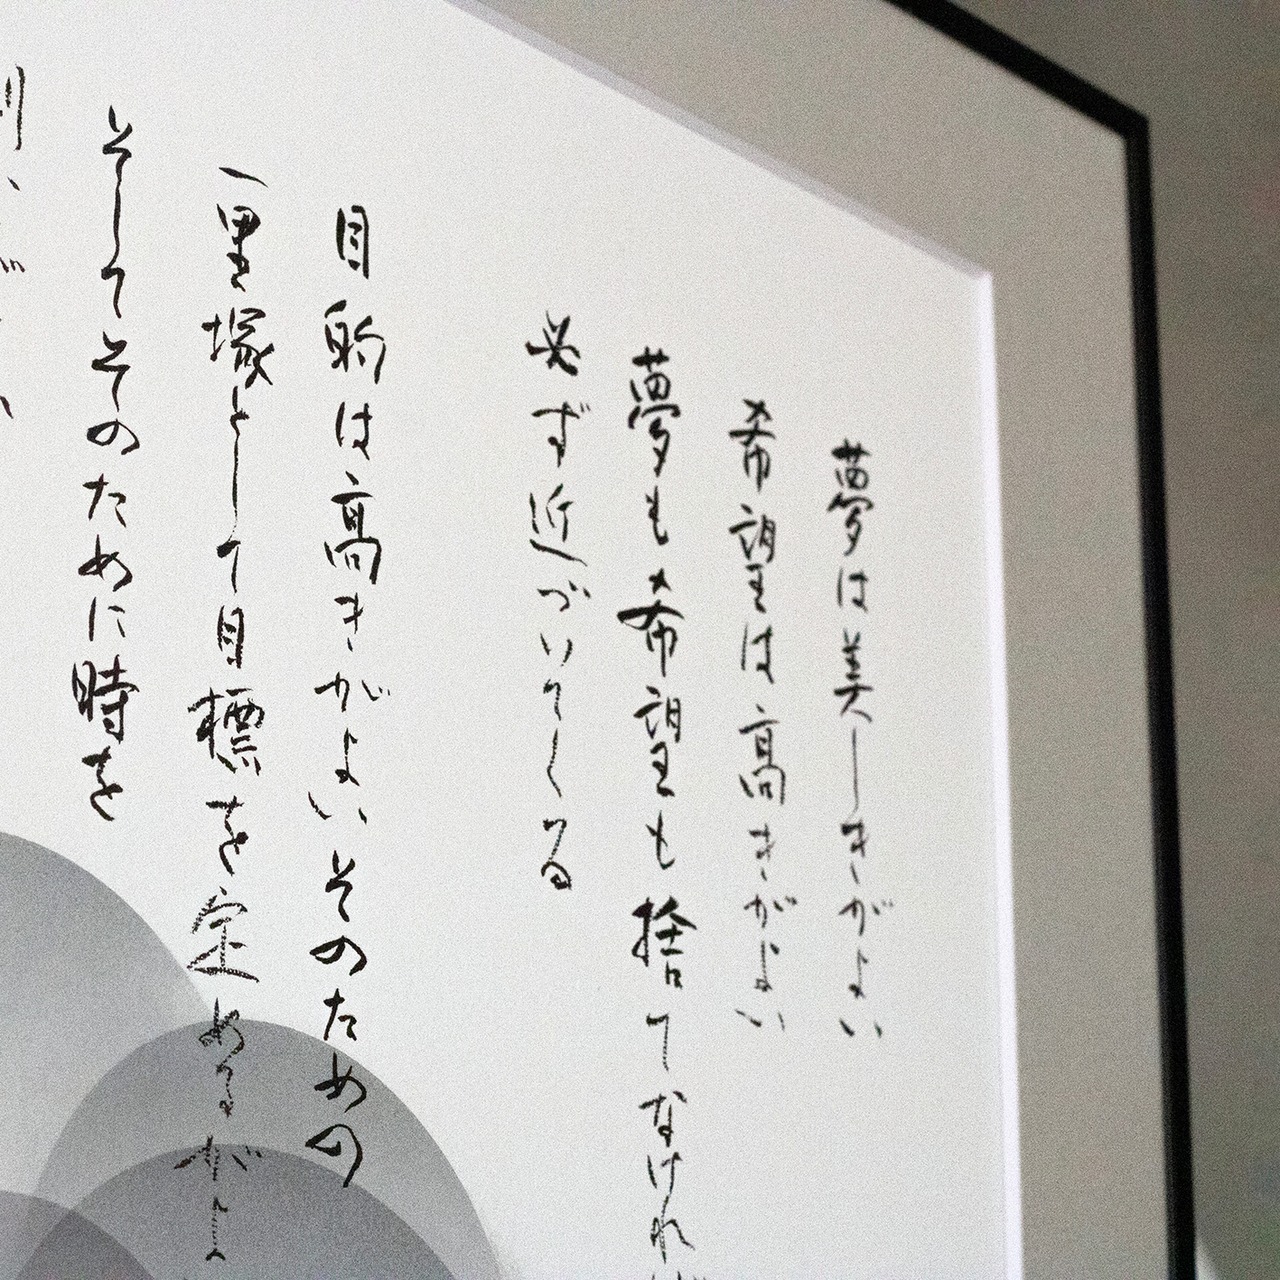 夢は美しきがよい
希望は高きがよい
夢も希望も捨てなければ
必ず近づいてくる
目的は高きがよいそのための
一里塚として目標を定めるがよ
そしてそのために時を